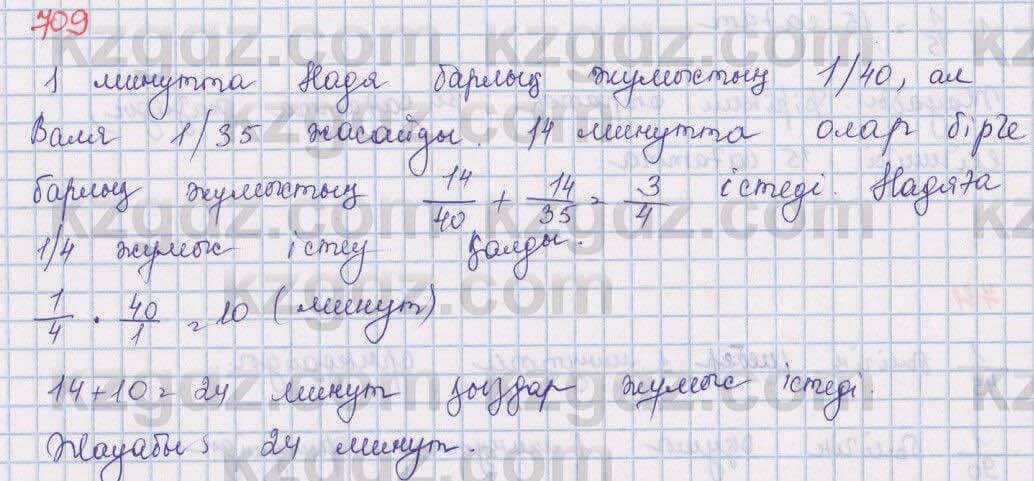 709
1 минутта Надя барлық жұмыстың 1/40, ал
Валя 1/35 жасайды. 14 минутта олар бірге
барлық жұмыстың 14/40 + 14/35 = 3/4 істеді. Надяға
1/4 жұмыс істеу қалды.
1/4 · 40/1 = 10 (минут)
14+10=24 минут қыздар жұмыс істеді.
Жауабы: 24 минут.
kzgdz.com